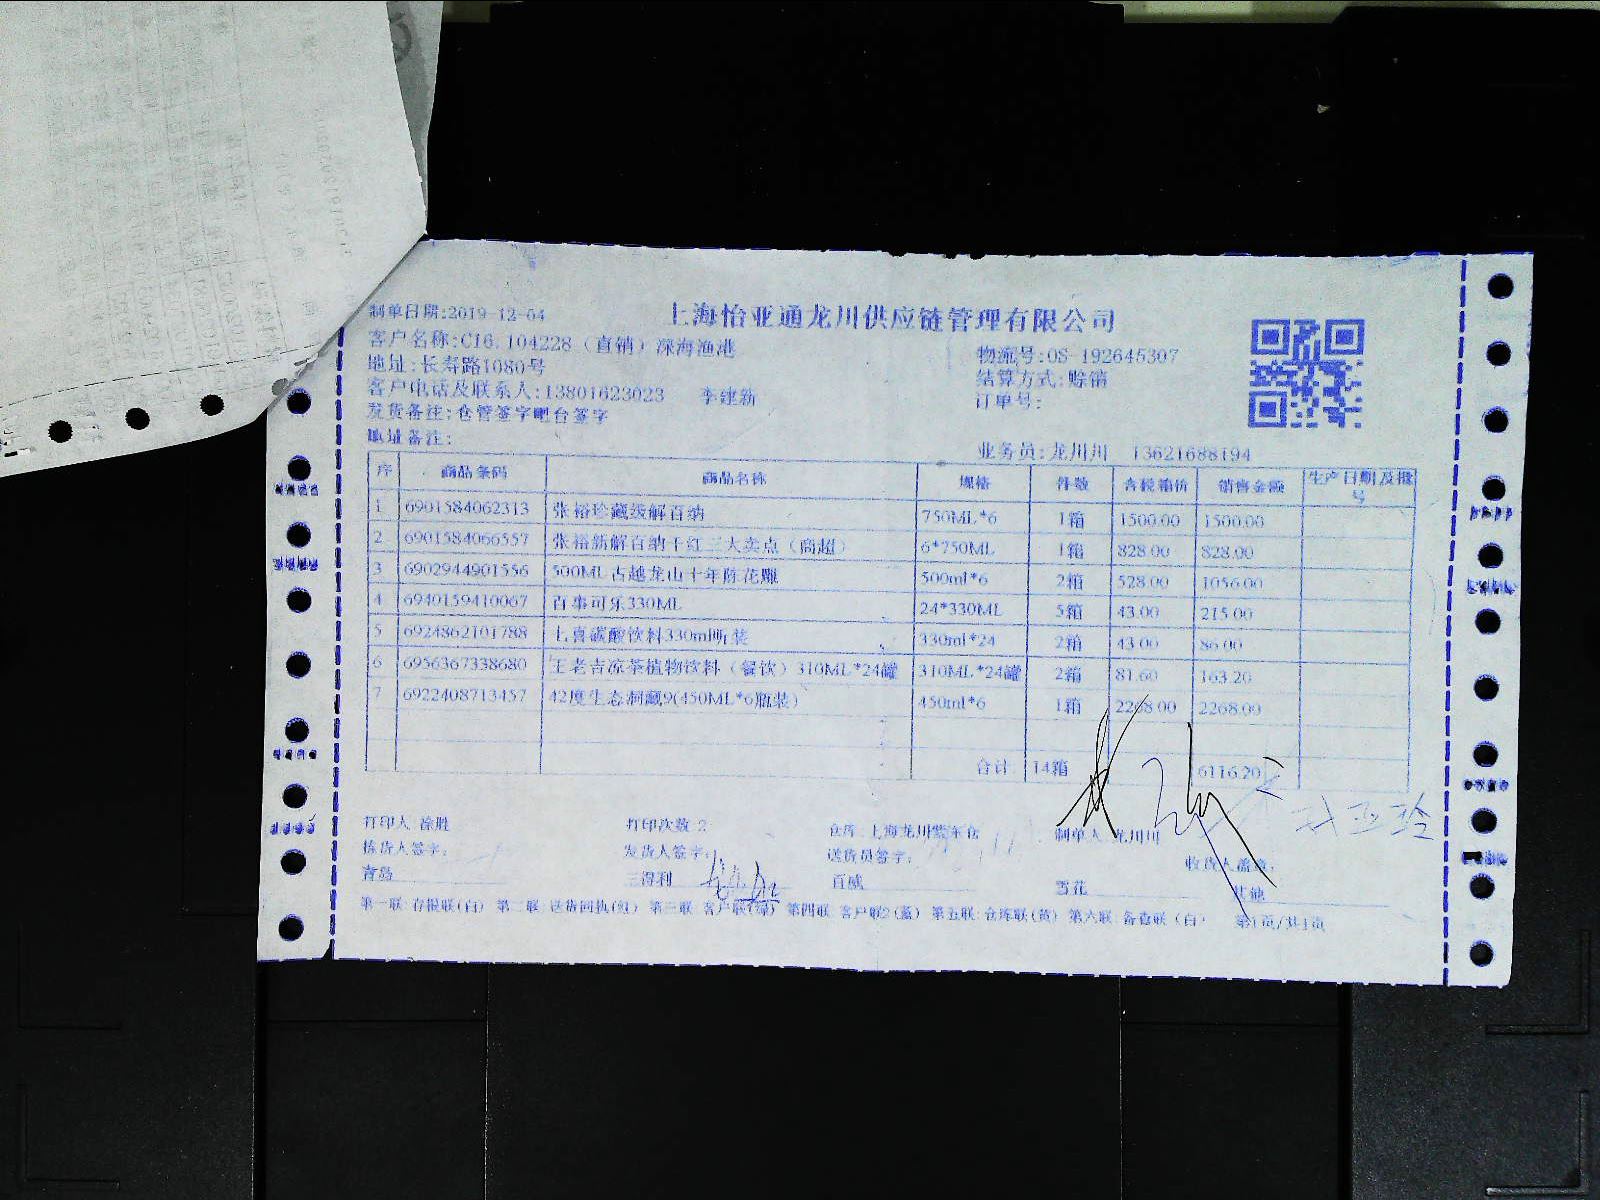 上海怡亚通龙川供应链管理有限公司
制单日期:2019-12-04
客户名称:C16.104228（直销）深海渔港
物流号:OS-192645307
地址:长寿路1080号
结算方式:赊销
客户电话及联系人:13801623023 李建新
订单号:
发货备注:仓管签字吧台签字
地址备注:
业务员:龙川川 13621688194
序 商品条码 商品名称 规格 件数 含税箱价 销售金额 生产日期及批号
1 6901584062313 张裕珍藏级解百纳 750ML*6 1箱 1500.00 1500.00
2 6901584066557 张裕新解百纳干红三大卖点（商超） 6*750ML 1箱 828.00 828.00
3 6902944901556 500ML古越龙山十年陈花雕 500ml*6 2箱 528.00 1056.00
4 6940159410067 百事可乐330ML 24*330ML 5箱 43.00 215.00
5 6924862101788 七喜碳酸饮料330ml听装 330ml*24 2箱 43.00 86.00
6 6956367338680 王老吉凉茶植物饮料（餐饮）310ML*24罐 310ML*24罐 2箱 81.60 163.20
7 6922408713457 42度生态洞藏9(450ML*6瓶装) 450ml*6 1箱 2268.00 2268.00
合计 14箱 6116.20
打印人 徐胜 打印次数 2 仓库 上海龙川浆车仓 制单人 龙川川
拣货人签字: 发货人签字: 送货员签字: 收货人盖章:
青岛 三得利 百威 雪花 其他
第一联 存根联(白) 第二联 送货回执(红) 第三联 客户联(绿) 第四联 客户联2(蓝) 第五联 仓库联(黄) 第六联 备查联(白) 第1页/共1页